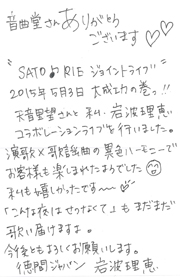 音曲堂さんありがとう
ございます♡♡
"SATO♪RIE ジョイントライブ"
2015年5月3日 大成功の巻っ!!
天音里望さんと私、岩波理恵
コラボレーションライブを行いました。
演歌×歌謡曲の異色ハーモニーで
お客様も楽しまれたようでした
私も嬉しかったです〜
「こんな夜はせつなくて」もまだまだ
歌い届けますよ。
今後ともよろしくお願いします。
徳間ジャパン 岩波理恵